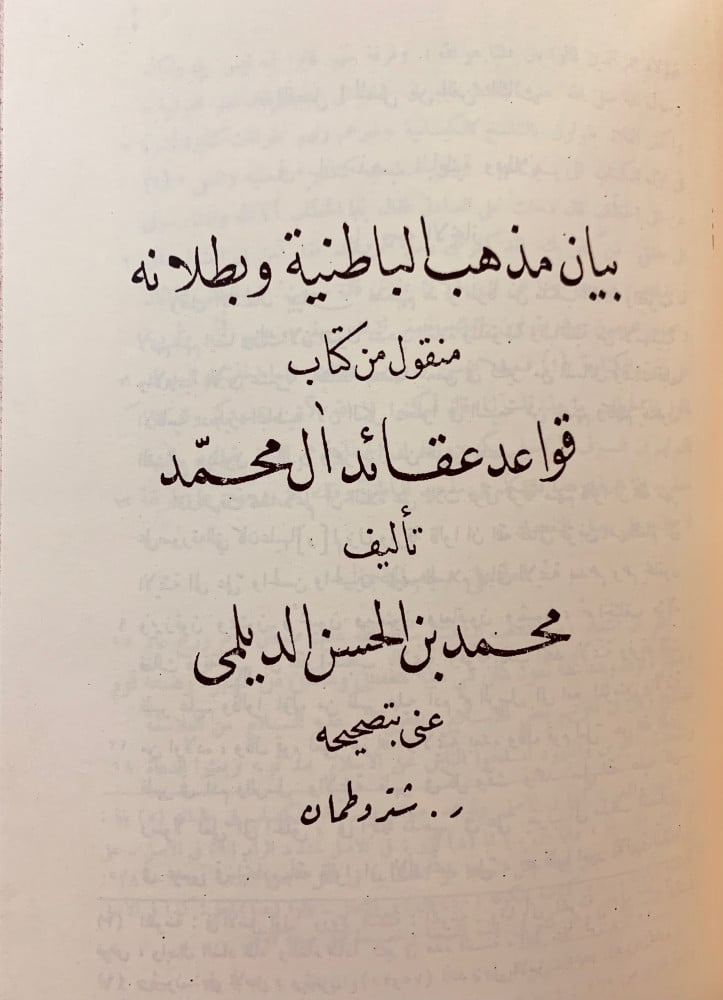 بيان مذهب الباطنية وبطلانه
منقول من كتاب
قواعد عقائد آل محمد
تأليف
محمد بن الحسن الديلمى
عنى بتصحيحه
ر. شتروطمان